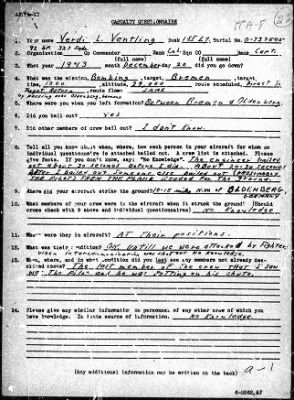 CASUALTY QUESTIONNAIRE
1. Your name Verdi L. Ventling Rank 1st Lt. Serial No. 0-
2. Organization Gp Commander Rank Col. Sqn CO Rank Capt.
(full name) (full name)
3. What year 1943 month December day 20 did you go down?
4. What was the mission, Bombing, target, Bremen, target time, altitude, 29,000 route scheduled, Direct to
Target Return, route flown same
5. Where were you when you left formation? Between Bremen & Oldenberg
6. Did you bail out? yes
7. Did other members of crew bail out? I don't know.
8. Tell all you know about when, where, how each person in your aircraft for whom no individual questionnaire is attached bailed out. A crew list is attached. Please give facts. If you don't know, say: "No Knowledge". The engineer bailed
out about 20 seconds before I did. About 20-30 seconds
after I bailed out someone else bailed out.
9. Where did your aircraft strike the ground? OLDENBERG
GERMANY
10. What members of your crew were in the aircraft when it struck the ground? (Should cross check with 8 above and individual questionnaires) No Knowledge
11. Where were they in aircraft? AT Their positions.
12. What was their condition? OK untill we were attacked by Fighter
13. When, where, and in what condition did you last see any members not already described above? The last member of the crew that I saw
was The Pilot and he was putting on his chute.
14. Please give any similar information on personnel of any other crew of which you have knowledge. Indicate source of information. No Knowledge.
a-1
(Any additional information may be written on the back)
6-3862,AF